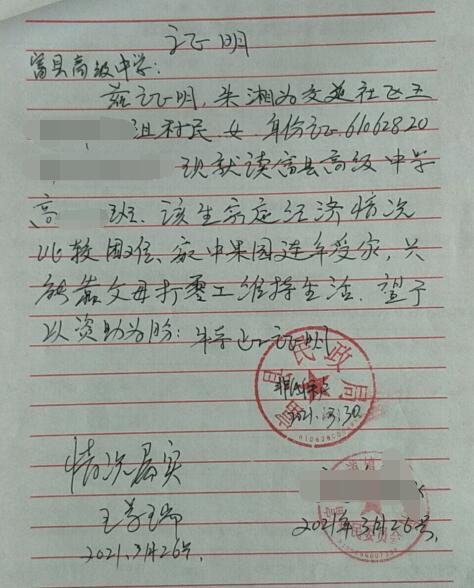 证明
富县高级中学:
兹证明,朱湘为交道社区五
组村民,女,身份证:61062820
现就读富县高级中学
高 班、该生家庭经济情况
比较困难、家中果园连年受灾,只
能靠父母打零工维持生活.望予
以资助为盼:特此证明
富县民政局
2021.3.30
情况属实
2021.3月26号.
2021年3月26号.